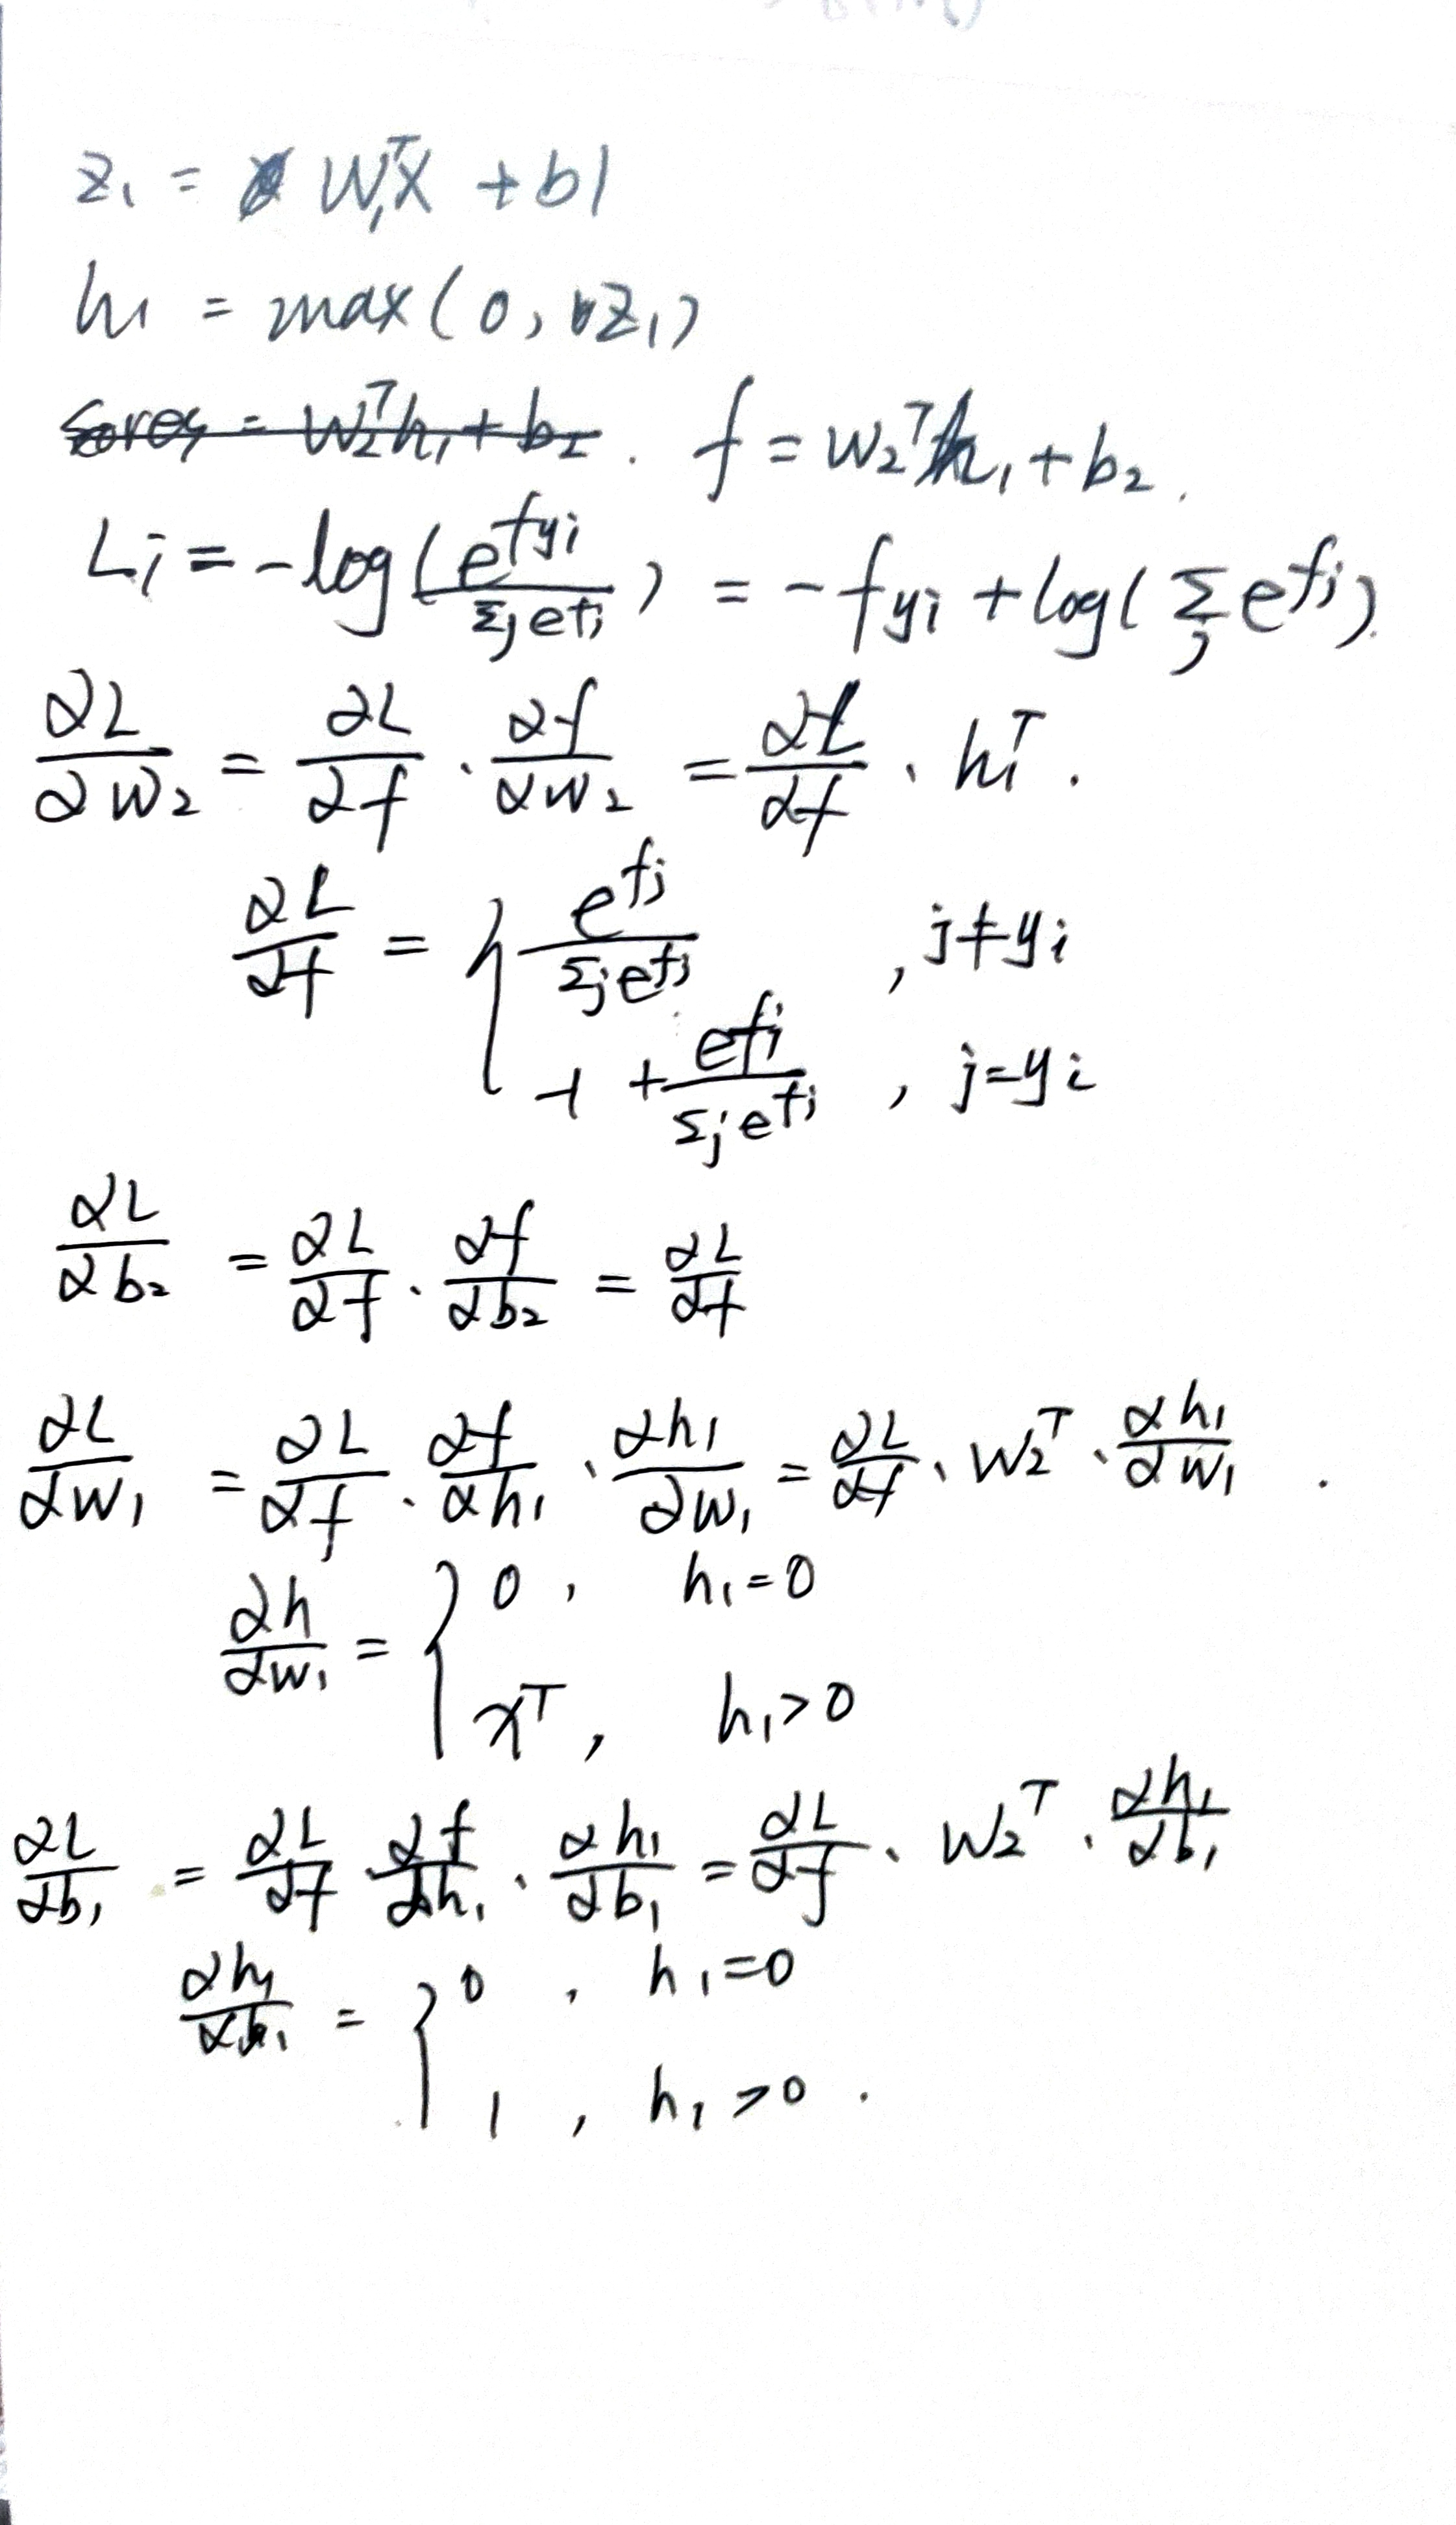 z₁ = W₁ᵀX + b1
h₁ = max(0, z₁)
Scores = W₂ᵀh₁ + b₂. f = W₂ᵀh₁ + b₂.
Li = -log(e^(fyi) / Σⱼe^(fj)) = -fyi + log(Σⱼ e^(fj)).
∂L/∂W₂ = ∂L/∂f · ∂f/∂W₂ = ∂L/∂f · h₁ᵀ.
∂L/∂f = { e^(fj) / Σⱼe^(fj) , j≠yi
-1 + e^(fj) / Σⱼe^(fj) , j=yi
∂L/∂b₂ = ∂L/∂f · ∂f/∂b₂ = ∂L/∂f
∂L/∂W₁ = ∂L/∂f · ∂f/∂h₁ · ∂h₁/∂W₁ = ∂L/∂f · W₂ᵀ · ∂h₁/∂W₁ .
∂h/∂W₁ = { 0 , h₁=0
xᵀ , h₁>0
∂L/∂b₁ = ∂L/∂f · ∂f/∂h₁ · ∂h₁/∂b₁ = ∂L/∂f · W₂ᵀ · ∂h₁/∂b₁
∂h₁/∂b₁ = { 0 , h₁=0
1 , h₁>0 .